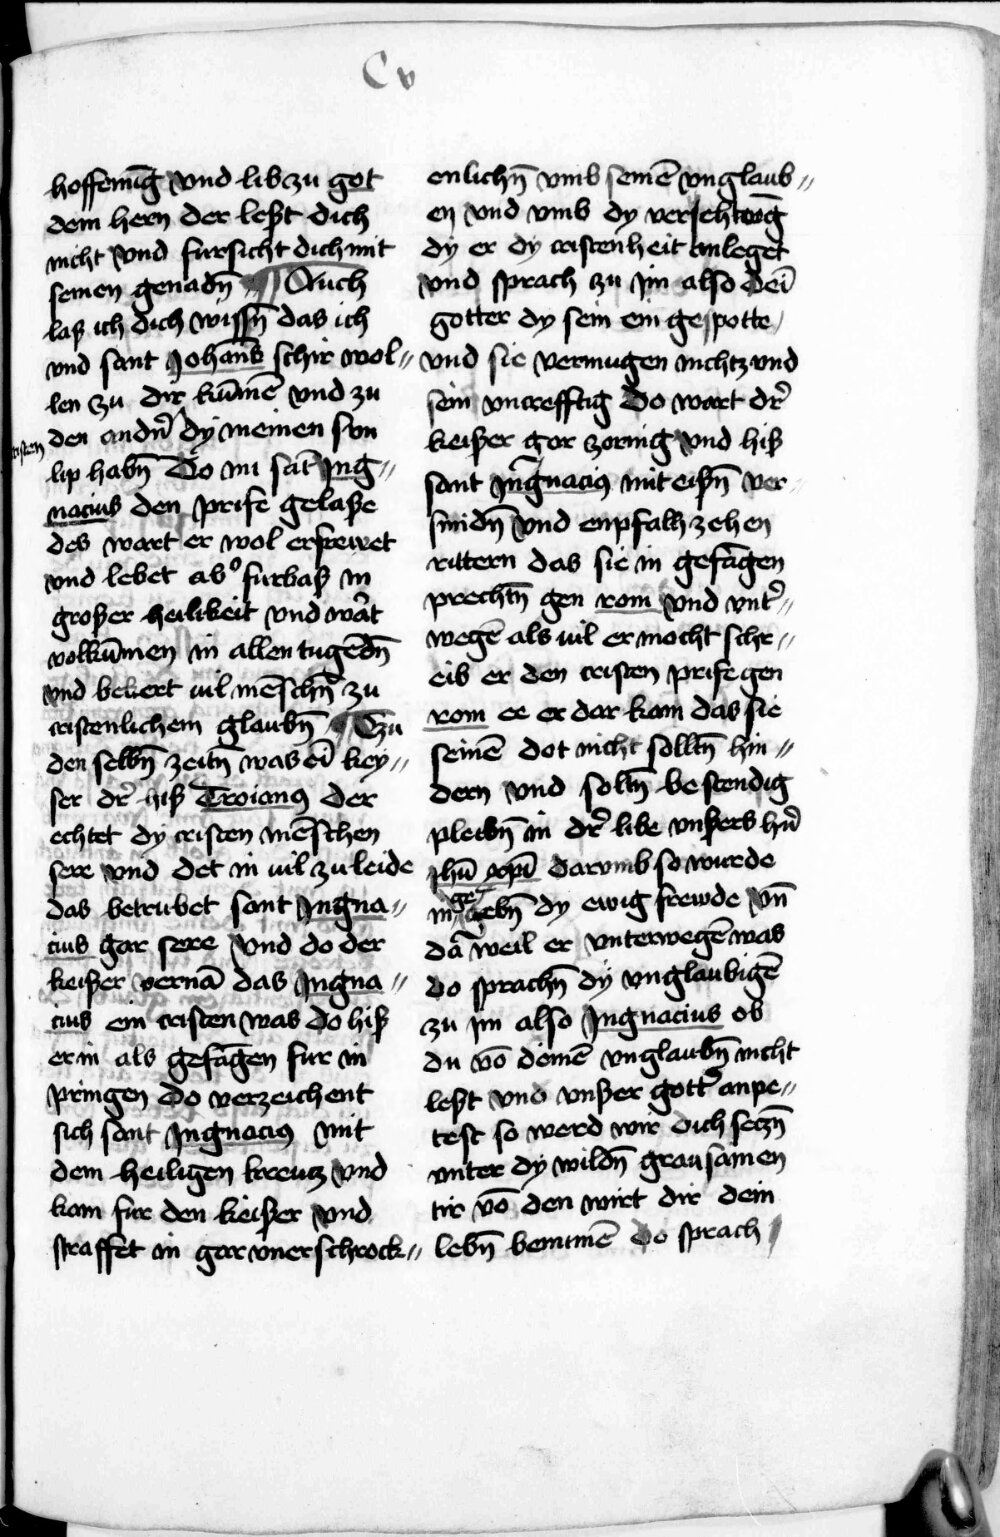 C v
hoffenūg vnd lib zu got
dem hern der leßt dich
nicht vnd fursicht dich mit
seinen genadn̄ ¶ Auch
laß ich dich wissn̄ das ich
vnd sant Johans schir wol〃
len zu dir kūmē vnd zu
den andn̄ dy meinen sun
cristen
lip habn̄ Do im sāt Ing〃
nacius den prife gelaße
des wart er wol erfrewet
vnd lebet abͦ furbaß in
großer heilikeit vnd wāt
volkūmen in allen tugēdn̄
vnd bekert vil mēschn̄ zu
cristenlichem glaubn̄ ¶ Tzu
den selbn̄ zeitn̄ was eī key〃
ser dr̄ hiß Troianꝰ der
echtet dy cristen mēschen
sere vnd det in vil zu leide
das betrubet sant Ingna〃
cius gar sere vnd do der
keißer vernā das Ingna〃
cius ein cristen was do hiß
er in als gefāgen fur in
pringen do verzeichent
sich sant Ingnaciꝰ mit
dem heiligen kreutz vnd
kam fur den keißer vnd
straffet in gar vnerschrock〃
enlichn̄ vmb seinē vnglaub〃
en vnd vmb dy versehtūg
dy er dy cristenheit anleget
vnd sprach zu im also deī
gotter dy sein ein gespotte
vnd sie vermugen nichtz vnd
sein vncrefftig Do wart dr̄
keißer gar zornig vnd hiß
sant Ingnaciꝰ mit eißn̄ ver〃
smidn̄ vnd enpfalh zehen
rittern das sie in gefāgen
prechtn̄ gen rom vnd vntr̄〃
wegē als vil er mocht schr〃
eib er den cristen prife gen
rom ee er dar kam das sie
seinē dot nicht solltn̄ hin〃
dern vnd soltn̄ bestendig
pleibn̄ in dr̄ libe vnßers hn̄
jhū xpī darvmb so wurde
in gebn̄ dy ewig frewde vn̄
dā weil er vnterwegē was
do sprachn̄ dy vnglaubigē
zu im also Ingnacius ob
du vō deinē vnglaubn̄ nicht
leßt vnd vnßer gottr̄ anpe〃
test so werd wir dich seczn̄
vnter dy wildn̄ grausamen
tir vō den wirt dir dein
lebn̄ benumē do sprach